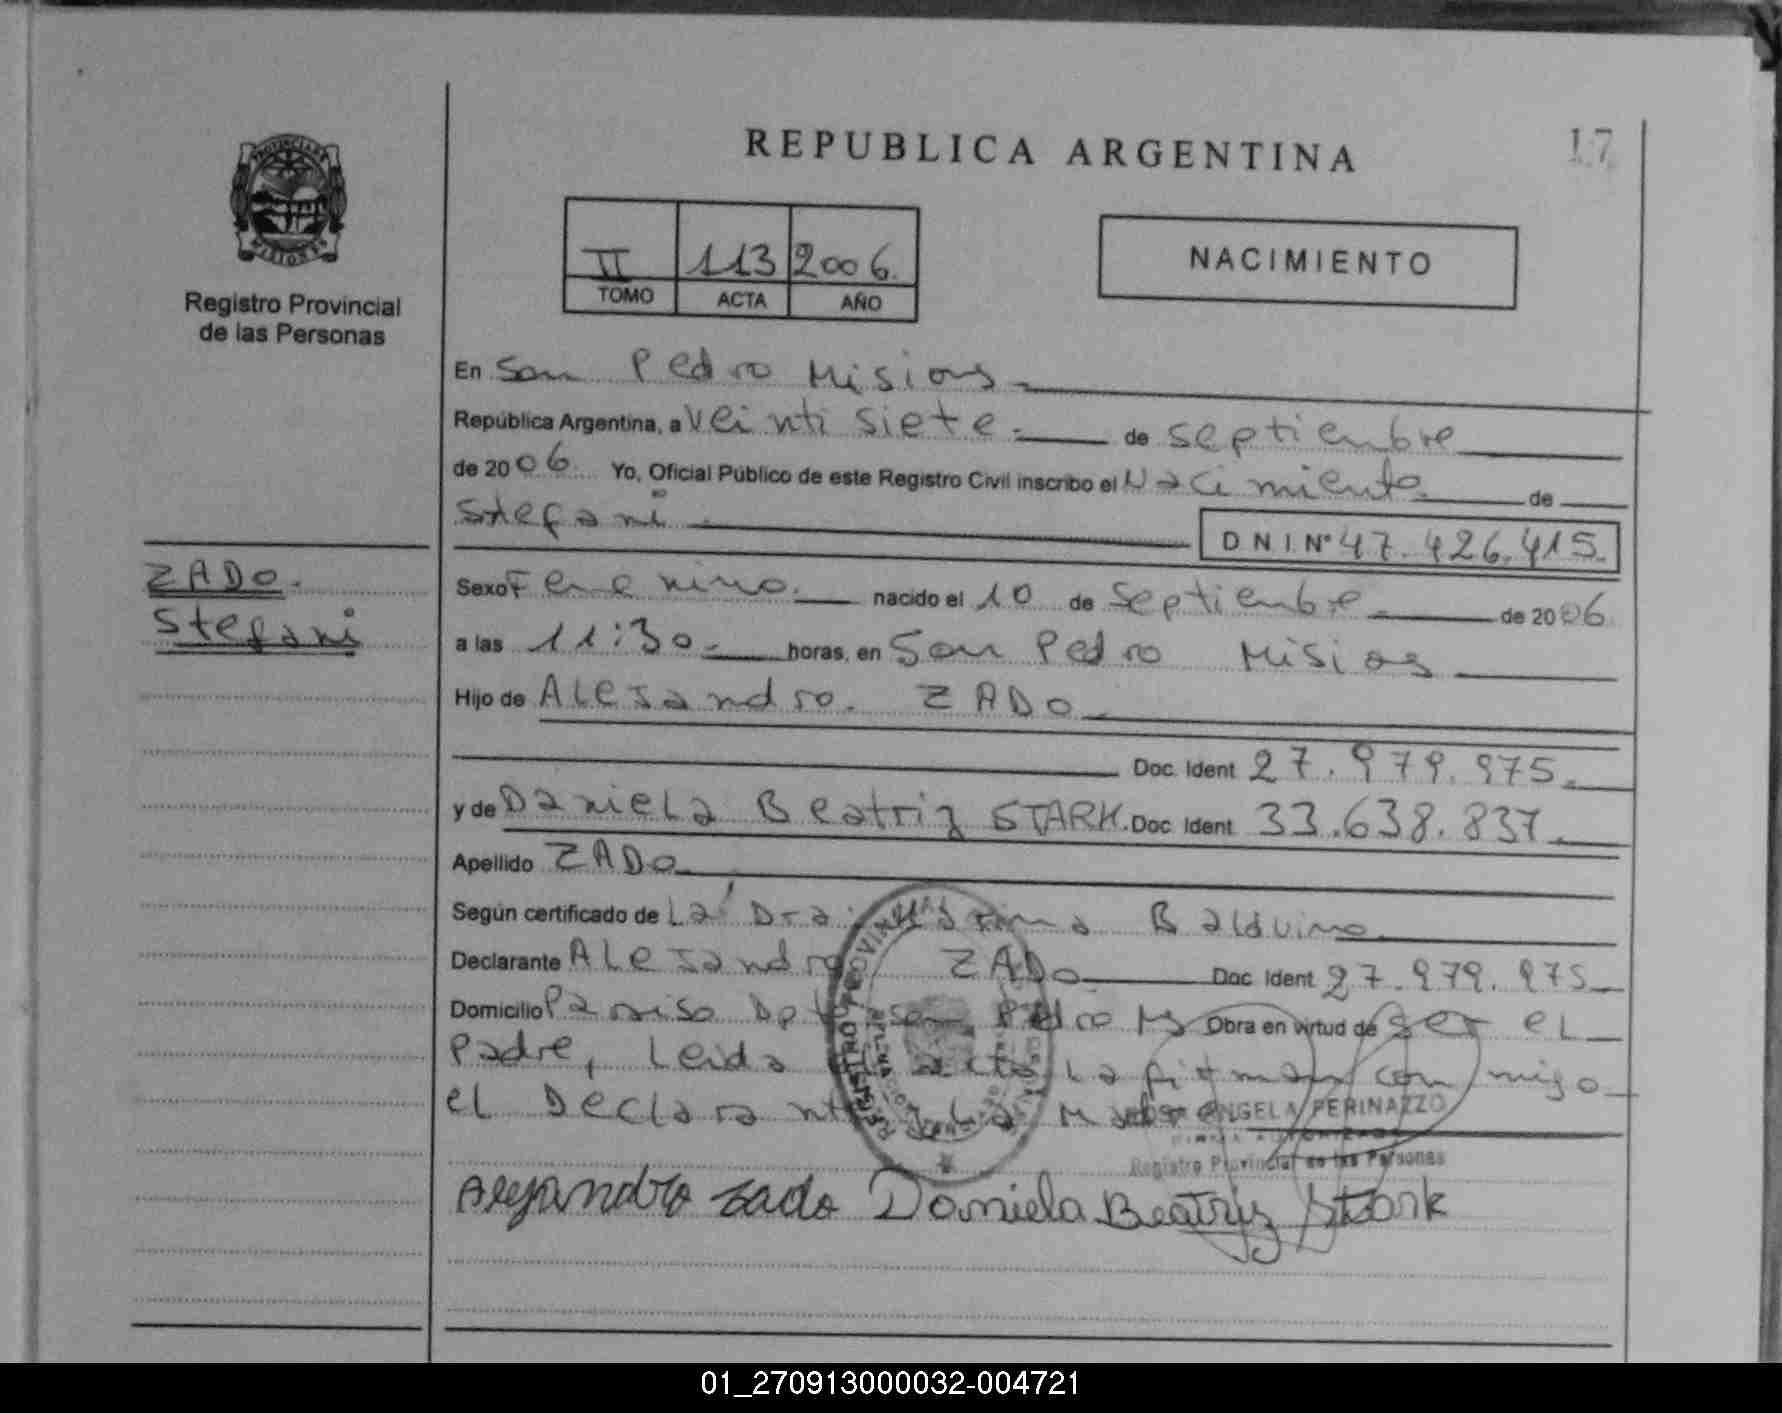 REPUBLICA ARGENTINA
17
PROVINCIA DE MISIONES
Registro Provincial
de las Personas
II 113 2006.
TOMO ACTA AÑO
NACIMIENTO
En San Pedro Misiones
República Argentina, a Veinti siete de septiembre
de 2006. Yo, Oficial Público de este Registro Civil inscribo el Nacimiento de
Stefani
D N I N° 47.426.415.
ZADO.
Stefani
Sexo Femenino. nacido el 10 de Septiembre de 2006
a las 11:30 horas, en San Pedro Misiones
Hijo de ALEJandro. ZADO
Doc. Ident 27.979.975.
y de DanieLa Beatriz STARK. Doc. Ident 33.638.837.
Apellido ZADO
Según certificado de La Dra. Balduino
Declarante ALEJandro ZADO Doc. Ident 27.979.975
Domicilio Paraiso Dpto San Pedro Ms Obra en virtud de ser eL
Padre, Leida acta La firman con migo
eL Declarante y La Madre
ANGELA PERINAZZO
FIRMA AUTORIZADA
Registro Provincial de las Personas
Alejandro zado Daniela Beatriz Stark
01_270913000032-004721